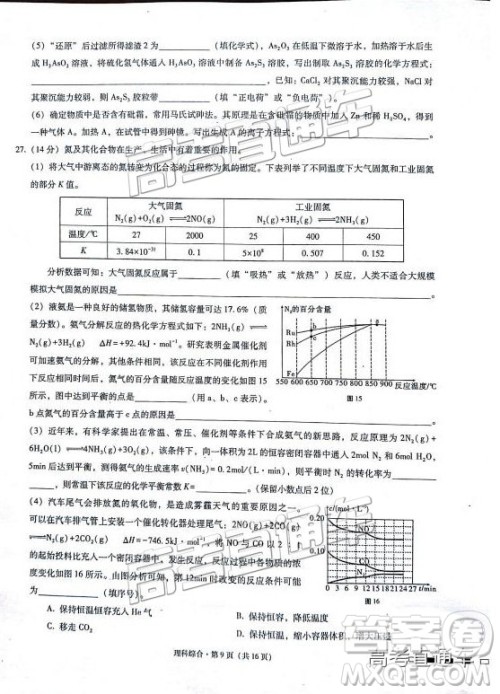 (5) “还原”后过滤所得滤渣 2 为____________(填化学式)，As₂O₃ 在低温下微溶于水，加热溶于水后生
成 H₃AsO₃ 溶液，将硫化氢气体通入 H₃AsO₃ 溶液中制备 As₂S₃ 溶胶，写出制备 As₂S₃ 溶胶的化学方程式：
____________，已知：CaCl₂ 对其聚沉能力较强，NaCl 对
其聚沉能力较弱，则 As₂S₃ 胶粒带____________(填“正电荷”或“负电荷”)。
(6) 确定物质中是否含有砒霜，常用马氏试砷法。具体操作是向含有砒霜的物质中加入 Zn 和稀 H₂SO₄，得到
一种气体 A。则生成 A 的离子方程式：____________。
27. (14 分) 氮及其化合物在生产、生活中有着重要的作用。
(1) 将大气中游离态的氮转变为化合态的过程称为氮的固定。下表列举了不同温度下大气固氮和工业固氮
的部分 K 值。
反应 大气固氮 N₂(g)+O₂(g)⇌2NO(g) 工业固氮 N₂(g)+3H₂(g)⇌2NH₃(g)
温度/℃ 27 2000 25 400 450
K 3.84×10⁻³¹ 0.1 5×10⁸ 0.507 0.152
分析数据可知：大气固氮反应属于____________(填“吸热”或“放热”)反应，人类不适合大规模
模拟大气固氮的原因是____________。
(2) 液氨是一种良好的储氢物质，其储氢容量可达 17.6%(质量分
数)。氨气分解反应的热化学方程式如下：2NH₃(g)⇌
N₂(g)+3H₂(g) ΔH=+92.4kJ·mol⁻¹。研究表明金属催化剂
可加速氨气的分解，其他条件相同，该反应在不同催化剂作用
下反应相同时间后，氮气的百分含量随反应温度的变化如图 15
所示，图中达到平衡的点是____________(用 a、b、c 表示)。
b 点氮气的百分含量高于 c 点的原因是____________。
N₂的百分含量
Ru
Rh
Fe
a
b
c
550 600 650 700 750 800 850 900 反应温度/℃
图 15
(3) 近年来，有科学家提出在常温、常压、催化剂等条件下合成氨气的新思路，反应原理为 2N₂(g)+
6H₂O(l)⇌4NH₃(g)+3O₂(g)，该条件下，向一体积为 2L 的恒容密闭容器中通入 2mol N₂ 和 6mol H₂O，
5min 后达到平衡，测得氨气的生成速率 v(NH₃)=0.2mol/(L·min)，则平衡时 N₂ 的转化率为
____________，则常温下该反应的化学平衡常数 K=____________。(保留小数点后 2 位)
(4) 汽车尾气会排放氮的氧化物，是造成雾霾天气的重要原因之一。
可在汽车排气管上安装一个催化转化器处理尾气：2NO(g)+2CO(g)
⇌N₂(g)+2CO₂(g) ΔH=-746.5kJ·mol⁻¹，将 NO 与 CO 以 2：1
的投料比充入一个密闭容器中，发生反应，反应过程中各物质的浓度变
化如图 16 所示。由图分析可知，第 12min 时改变的反应条件可能
为____________(填序号)。
c/(mol·L⁻¹)
0.20
0.10
CO
N₂
0 3 6 9 12 15 18 21 24 27 t/min
图 16
A. 保持恒温恒容充入 He 气 B. 保持恒容，降低温度
C. 移走 CO₂ D. 保持恒温，缩小容器体积，增大压强
理科综合·第 9 页 (共 16 页)
高考直通车
高考直通车
高考直通车
答案圈